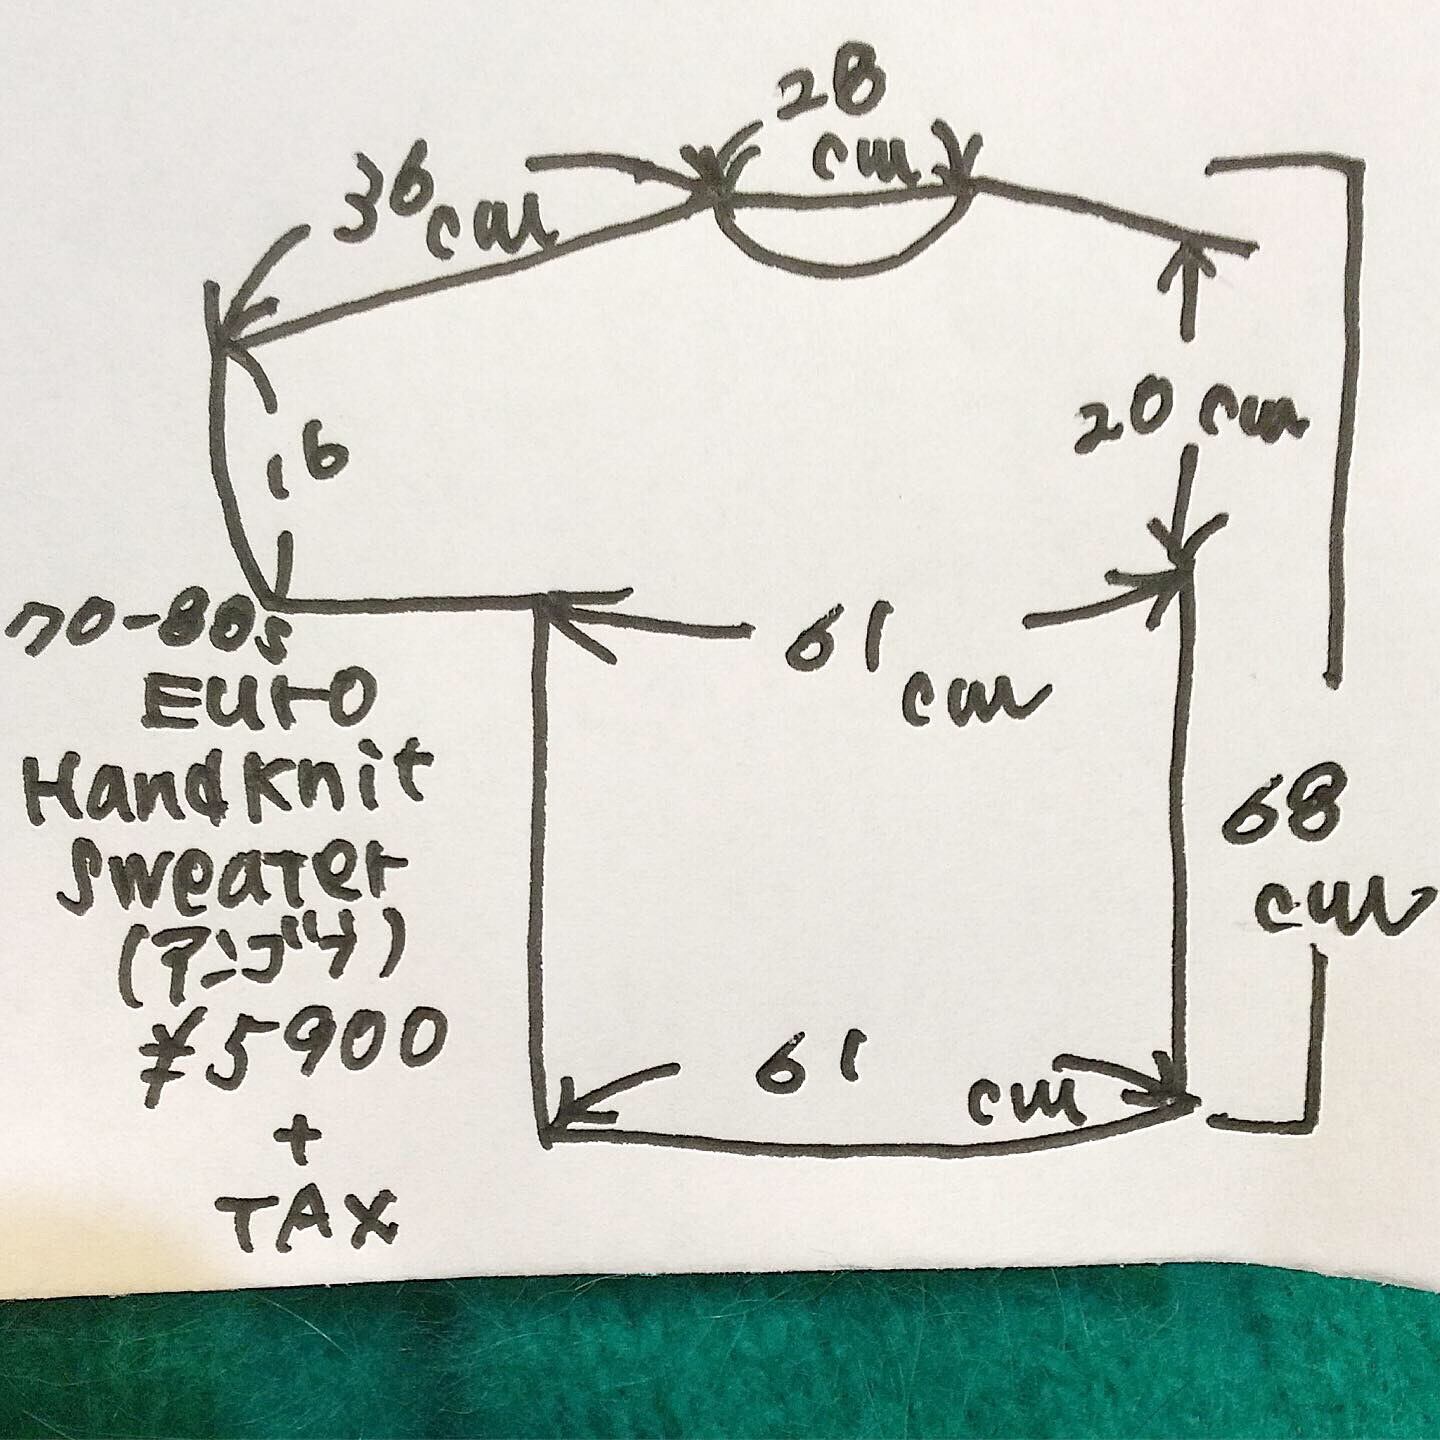 28
cm
36cm
16
20 cm
61
cm
70-80s
Euro
Hand Knit
Sweater
(アンゴラ)
¥5900
+
TAX
68
cm
61
cm